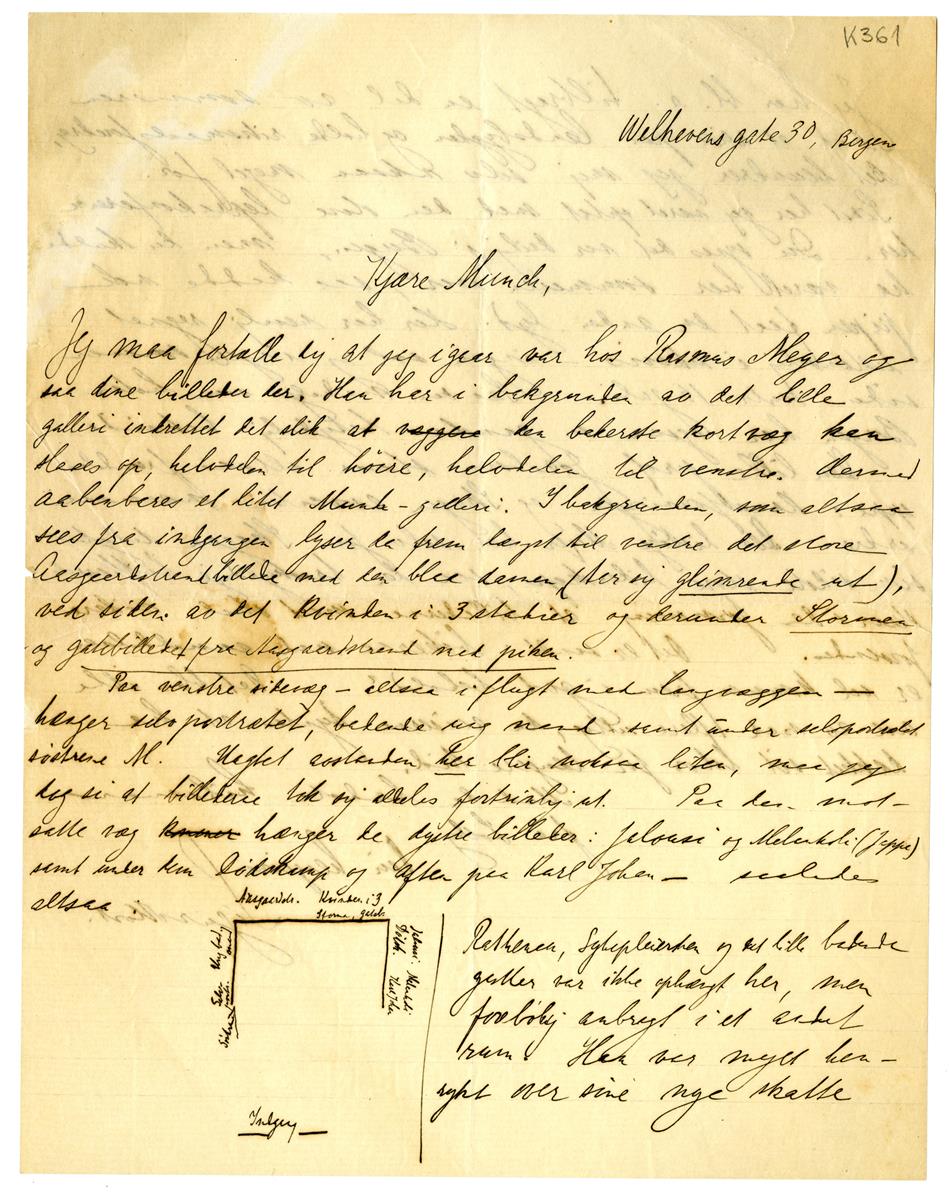 K361
Welhevens gate 30, Bergen
Kjære Munch,
Jeg maa fortælle dig at jeg igaar var hos Rasmus Meyer og
saa dine billeder der. Han har i bakgrunden av det lille
galleri indrettet det slik at væggene den bakerste kortvæg kan
slaaes op, halvdelen til høire, halvdelen til venstre. Dermed
aabenbares et litet Munch-galleri. I bakgrunden, som altsaa
sees fra indgangen lyser da frem længst til venstre det store
Aasgaardstrandbillede med den blaa damen (tar sig glimrende ut),
ved siden av det Kvinden i 3 stadier og derunder Stormen
og gatebilledet fra Aasgaardstrand med piken.
Paa venstre sidevæg – altsaa i flugt med langvæggen –
hænger selvportrætet, badende ung mand samt under selvportrætet
søstrene M. Uagtet avstanden her blir noksaa liten, maa jeg
dog si at billederne tok sig aldeles fortrinlig ut. Paa den mot-
satte væg hænger de dystre billeder: Jalousi og Melankoli (Jappe)
samt under dem Dødskamp og Aften paa Karl Johan – saaledes
altsaa
Aasgaardstr. Kvinden i 3
Storm, gateb.
Ung bad. mand
Selvportr.
Søstrene
Jalousi. Melankoli
Dødsk. Karl Joh.
Indgang
Rathenau, Sykepleiersken og det lille badende
gutter var ikke ophængt her, men
foreløbig anbragt i et andet
rum. Han var meget hen-
rykt over sine nye skatte